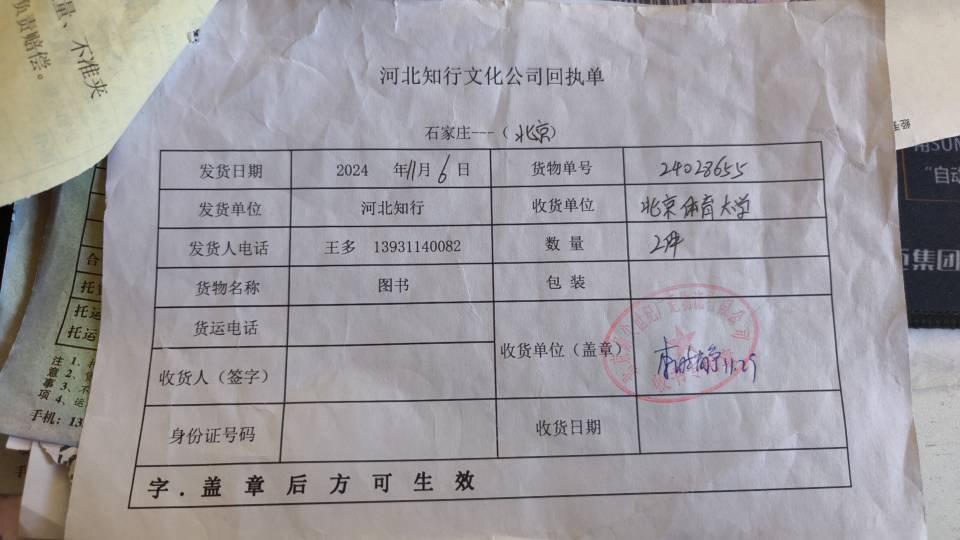 量、不准夹
负责赔偿。
河北知行文化公司回执单
石家庄---（北京）
发货日期 2024 年11月6日 货物单号 24028655
发货单位 河北知行 收货单位 北京体育大学
发货人电话 王多 13931140082 数 量 2件
货物名称 图书 包 装
货运电话
收货单位（盖章） 11.29
收货人（签字）
身份证号码 收货日期
字．盖章后方可生效
合
托运
托运
注意事项
1、
2、
3、不
4、运
手机：13
用SUN
“自动
集团